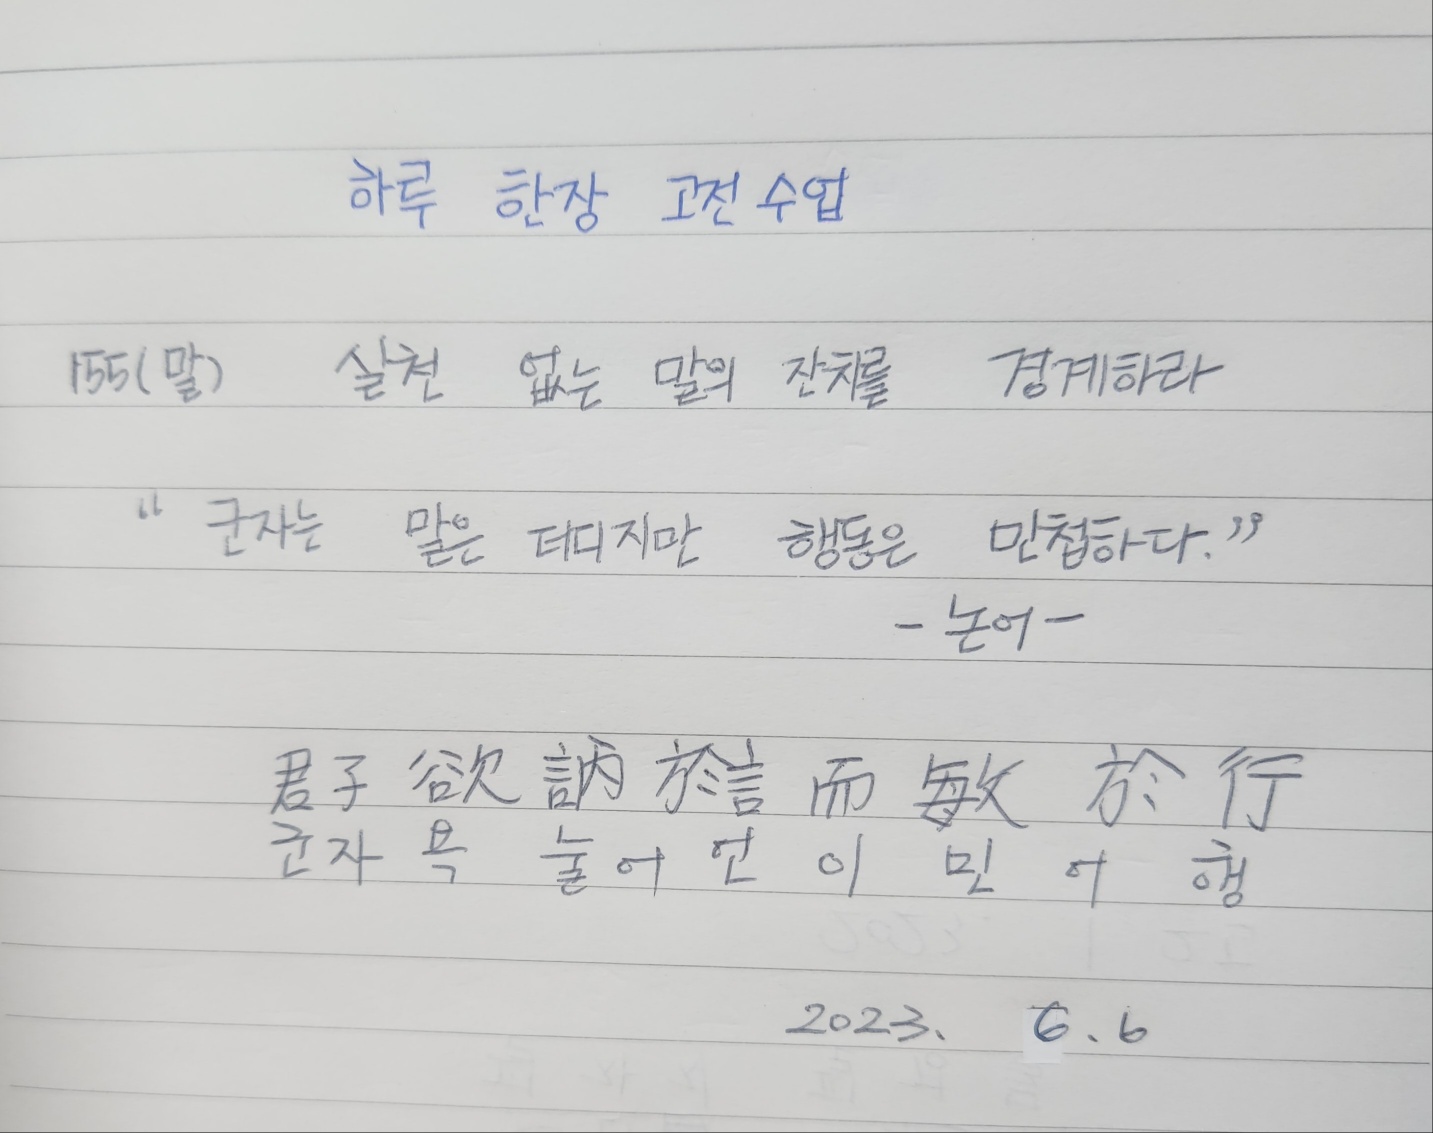 하루 한장 고전 수업
155(말) 실천 없는 말의 잔치를 경계하라
“군자는 말은 더디지만 행동은 민첩하다.”
- 논어 -
君子 欲 訥 於言 而 敏 於 行
군자 욕 눌어 언 이 민 어 행
2023. 6. 6